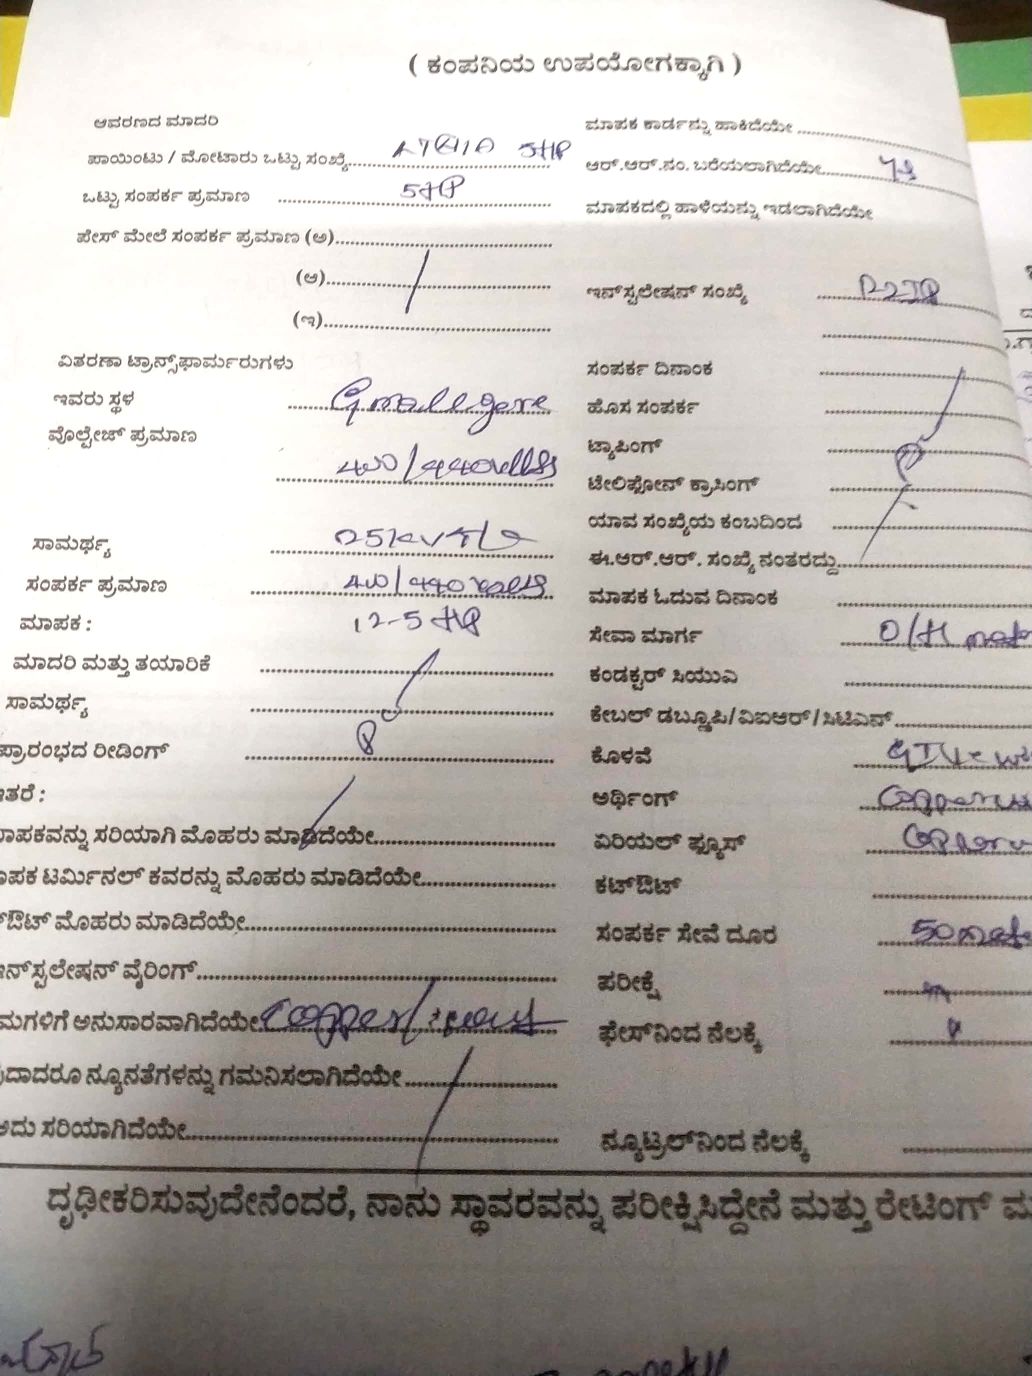 ( ಕಂಪನಿಯ ಉಪಯೋಗಕ್ಕಾಗಿ )
ಆವರಣದ ಮಾದರಿ
ಪಾಯಿಂಟು / ಮೋಟಾರು ಒಟ್ಟು ಸಂಖ್ಯೆ 5HP
ಒಟ್ಟು ಸಂಪರ್ಕ ಪ್ರಮಾಣ 5HP
ಪೇಸ್ ಮೇಲೆ ಸಂಪರ್ಕ ಪ್ರಮಾಣ (ಅ)
(ಆ)
(ಇ)
ವಿತರಣಾ ಟ್ರಾನ್ಸ್‌ಫಾರ್ಮರುಗಳು
ಇವರು ಸ್ಥಳ
ವೊಲ್ಟೇಜ್ ಪ್ರಮಾಣ
400/440volts
ಸಾಮರ್ಥ್ಯ
ಸಂಪರ್ಕ ಪ್ರಮಾಣ 400/440 volts
ಮಾಪಕ : 12-5 HP
ಮಾದರಿ ಮತ್ತು ತಯಾರಿಕೆ
ಸಾಮರ್ಥ್ಯ
ಪ್ರಾರಂಭದ ರೀಡಿಂಗ್
ಇತರೆ :
ಮಾಪಕವನ್ನು ಸರಿಯಾಗಿ ಮೊಹರು ಮಾಡಿದೆಯೇ
ಮಾಪಕ ಟರ್ಮಿನಲ್ ಕವರನ್ನು ಮೊಹರು ಮಾಡಿದೆಯೇ
ಔಟ್ ಮೊಹರು ಮಾಡಿದೆಯೇ
ಇನ್‌ಸ್ಟಲೇಷನ್ ವೈರಿಂಗ್
ಮಗಳಿಗೆ ಅನುಸಾರವಾಗಿದೆಯೇ Copper
ದಾದರೂ ನ್ಯೂನತೆಗಳನ್ನು ಗಮನಿಸಲಾಗಿದೆಯೇ
ಅದು ಸರಿಯಾಗಿದೆಯೇ
ಮಾಪಕ ಕಾರ್ಡನ್ನು ಹಾಕಿದೆಯೇ
ಆರ್.ಆರ್.ನಂ. ಬರೆಯಲಾಗಿದೆಯೇ
ಮಾಪಕದಲ್ಲಿ ಹಾಳೆಯನ್ನು ಇಡಲಾಗಿದೆಯೇ
ಇನ್‌ಸ್ಟಲೇಷನ್ ಸಂಖ್ಯೆ
ಸಂಪರ್ಕ ದಿನಾಂಕ
ಹೊಸ ಸಂಪರ್ಕ
ಟ್ಯಾಪಿಂಗ್
ಟೇಲಿಫೋನ್ ಕ್ರಾಸಿಂಗ್
ಯಾವ ಸಂಖ್ಯೆಯ ಕಂಬದಿಂದ
ಈ.ಆರ್.ಆರ್. ಸಂಖ್ಯೆ ನಂತರದ್ದು
ಮಾಪಕ ಓದುವ ದಿನಾಂಕ
ಸೇವಾ ಮಾರ್ಗ O/H
ಕಂಡಕ್ಟರ್ ಸಿಯುಎ
ಕೇಬಲ್ ಡಬ್ಲ್ಯೂಪಿ/ವಿಐಆರ್/ಸಿಟಿಎಸ್
ಕೊಳವೆ
ಅರ್ಥಿಂಗ್
ಏರಿಯಲ್ ಫ್ಯೂಸ್
ಕಟ್‌ಔಟ್
ಸಂಪರ್ಕ ಸೇವೆ ದೂರ
ಪರೀಕ್ಷೆ
ಫೇಸ್‌ನಿಂದ ನೆಲಕ್ಕೆ
ನ್ಯೂಟ್ರಲ್‌ನಿಂದ ನೆಲಕ್ಕೆ
ದೃಢೀಕರಿಸುವುದೇನೆಂದರೆ, ನಾನು ಸ್ಥಾವರವನ್ನು ಪರೀಕ್ಷಿಸಿದ್ದೇನೆ ಮತ್ತು ರೇಟಿಂಗ್